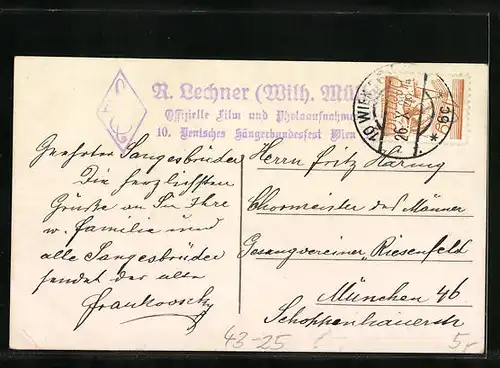 R. Lechner (Wilh. Mü
Offizielle Film und Photoaufnahm
10. Deutsches Sängerbundesfest Wien
10 WIEN
26.X
* 6c *
Geehrter Sangesbrüder
Die herzlichsten
Grüße an Sie Ihre
w. Familie und
alle Sangesbrüder
sendet der alte
Frankowsky
Herrn Fritz Häring
Chormeister des Männer
Gesangvereines „Riesenfeld
München 46
Schoppenhauerstr
43-25
5,-